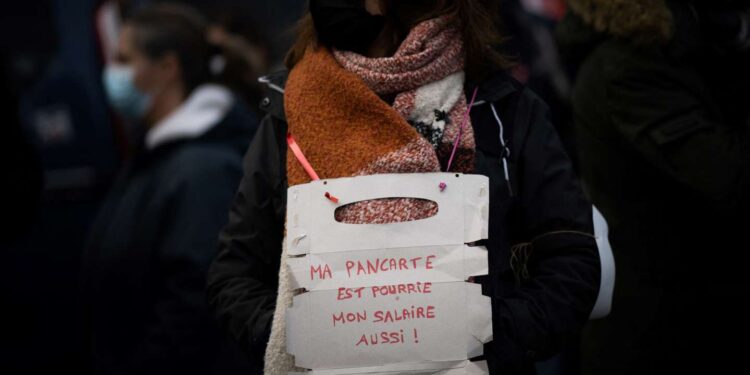 MA PANCARTE
EST POURRIE
MON SALAIRE
AUSSI !